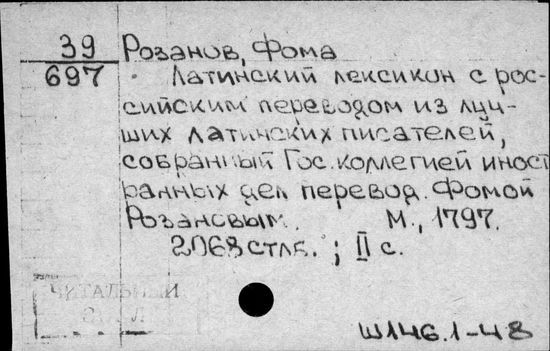 39
697
Розанов, Фома
Латинский лексикон с рос-
сийским переводом из луч-
ших латинских писателей,
собранный Гос. коллегией иност
ранных дел перевод. Фомой
Розановым. М., 1797.
2068 стлб. ; II с.
ЧИТАЛЬНЫЙ
ЗАЛ
Ш146.1-48